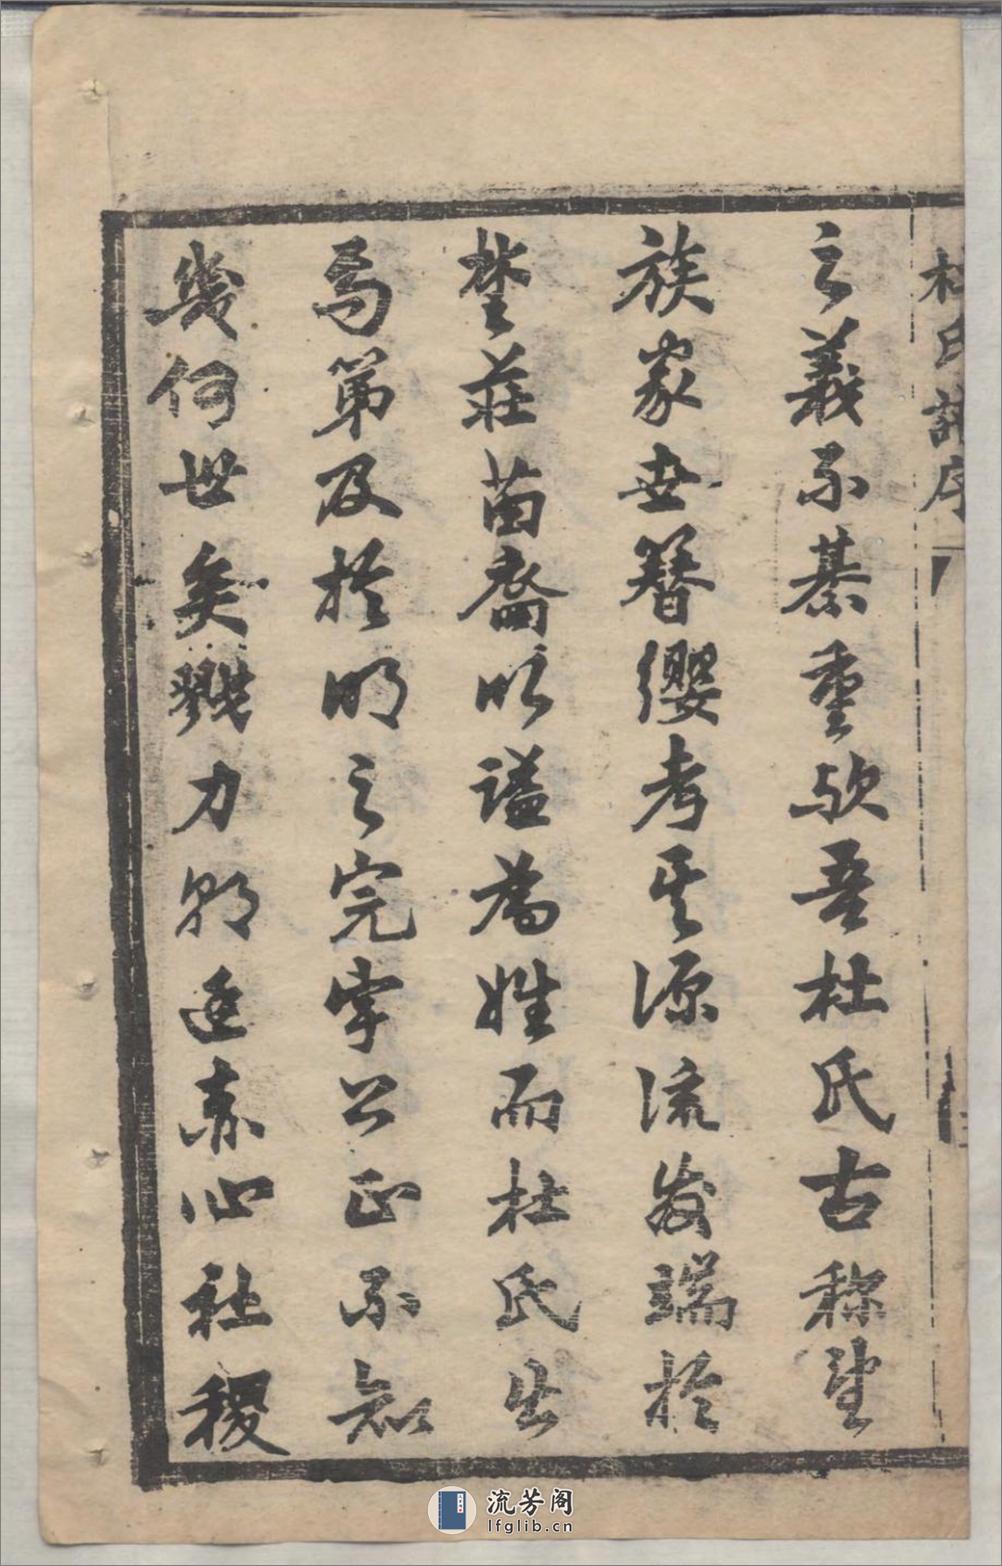 杜氏譜序
之義不綦重欤吾杜氏古称望
族家世簪纓考其源流發端於
楚莊苗裔以謚為姓而杜氏出
焉第及於明之完字公正不知
幾何世矣戮力朝廷赤心社稷
流芳阁
lfglib.cn